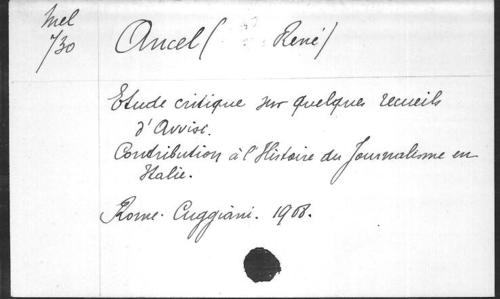 Mel
730
Ancel (René)
Etude critique sur quelques recueils
d'Avvisi.
Contribution à l'Histoire du Journalisme en
Italie.
Rome. Cuggiani. 1908.